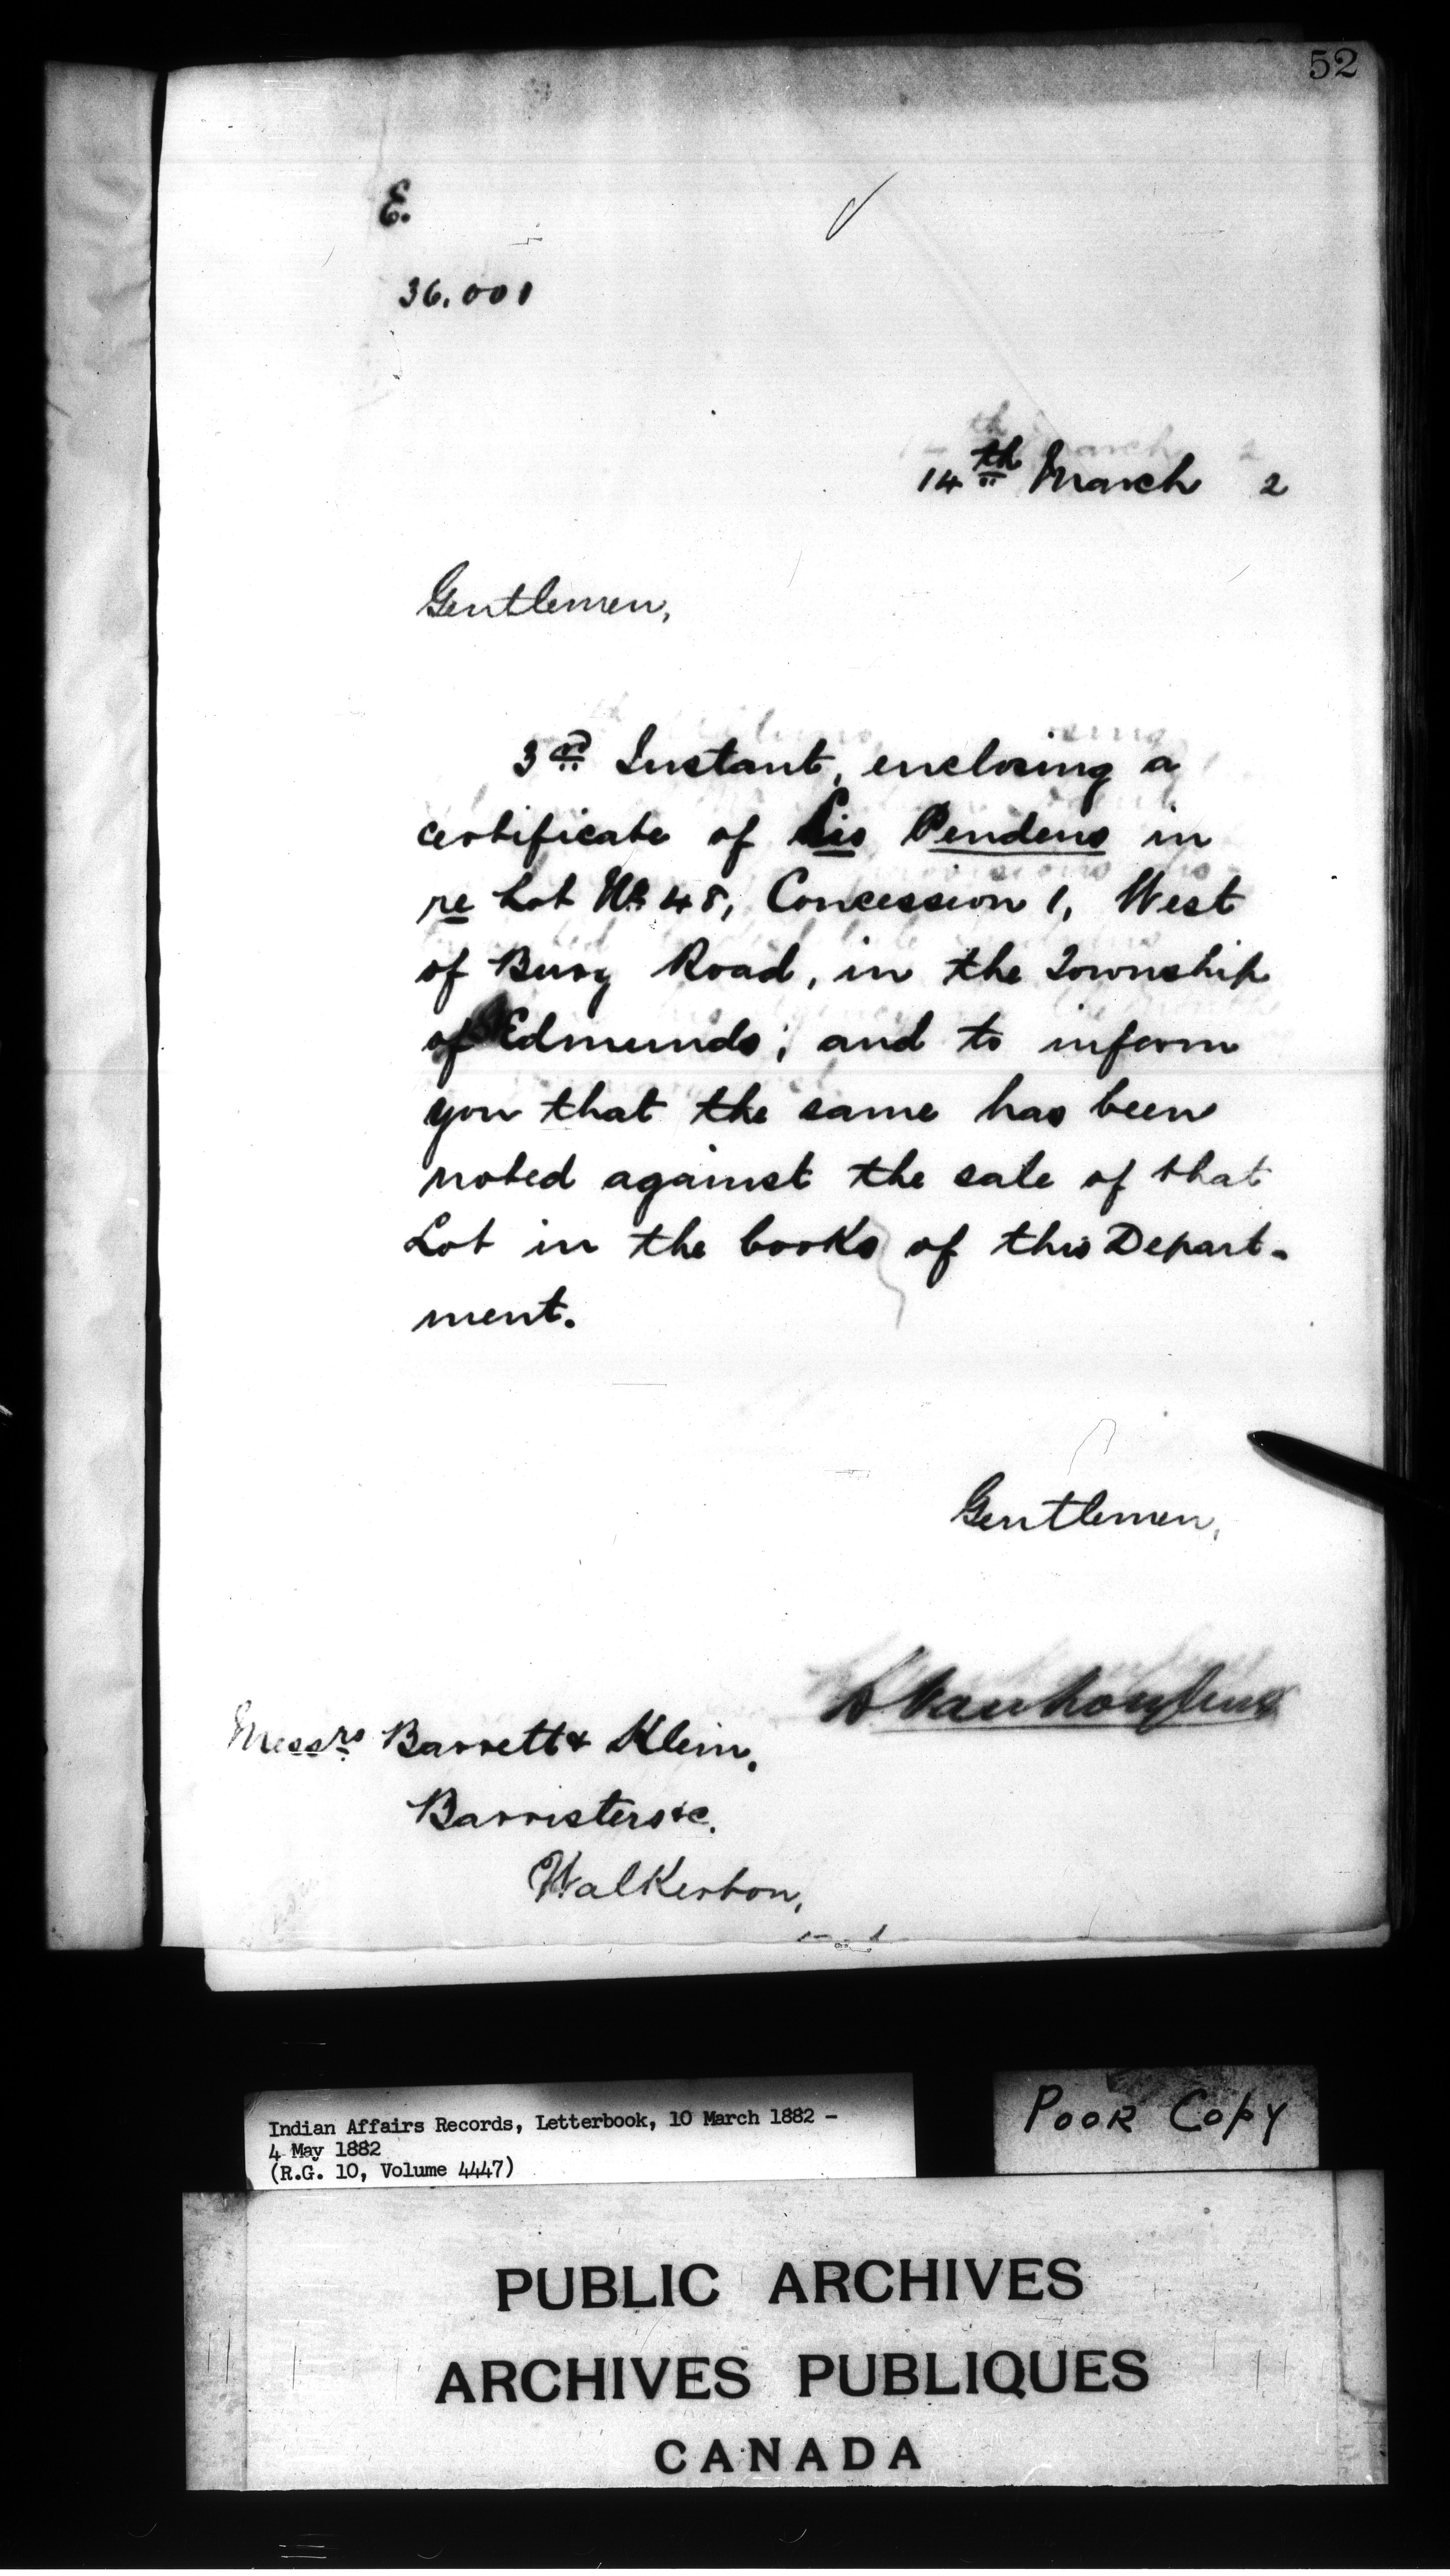 52
E.
36.001
14th March 2
Gentlemen,
3rd Instant, enclosing a
certificate of Lis Pendens in
re Lot No. 48, Concession 1, West
of Bury Road, in the Township
of Edmunds; and to inform
you that the same has been
noted against the sale of that
Lot in the books of this Depart-
ment.
Gentlemen,
L Vankoughnet
Messrs Barrett & Klein,
Barristers &c.
Walkerton,
Indian Affairs Records, Letterbook, 10 March 1882 -
4 May 1882
(R.G. 10, Volume 4447)
POOR COPY
PUBLIC ARCHIVES
ARCHIVES PUBLIQUES
CANADA